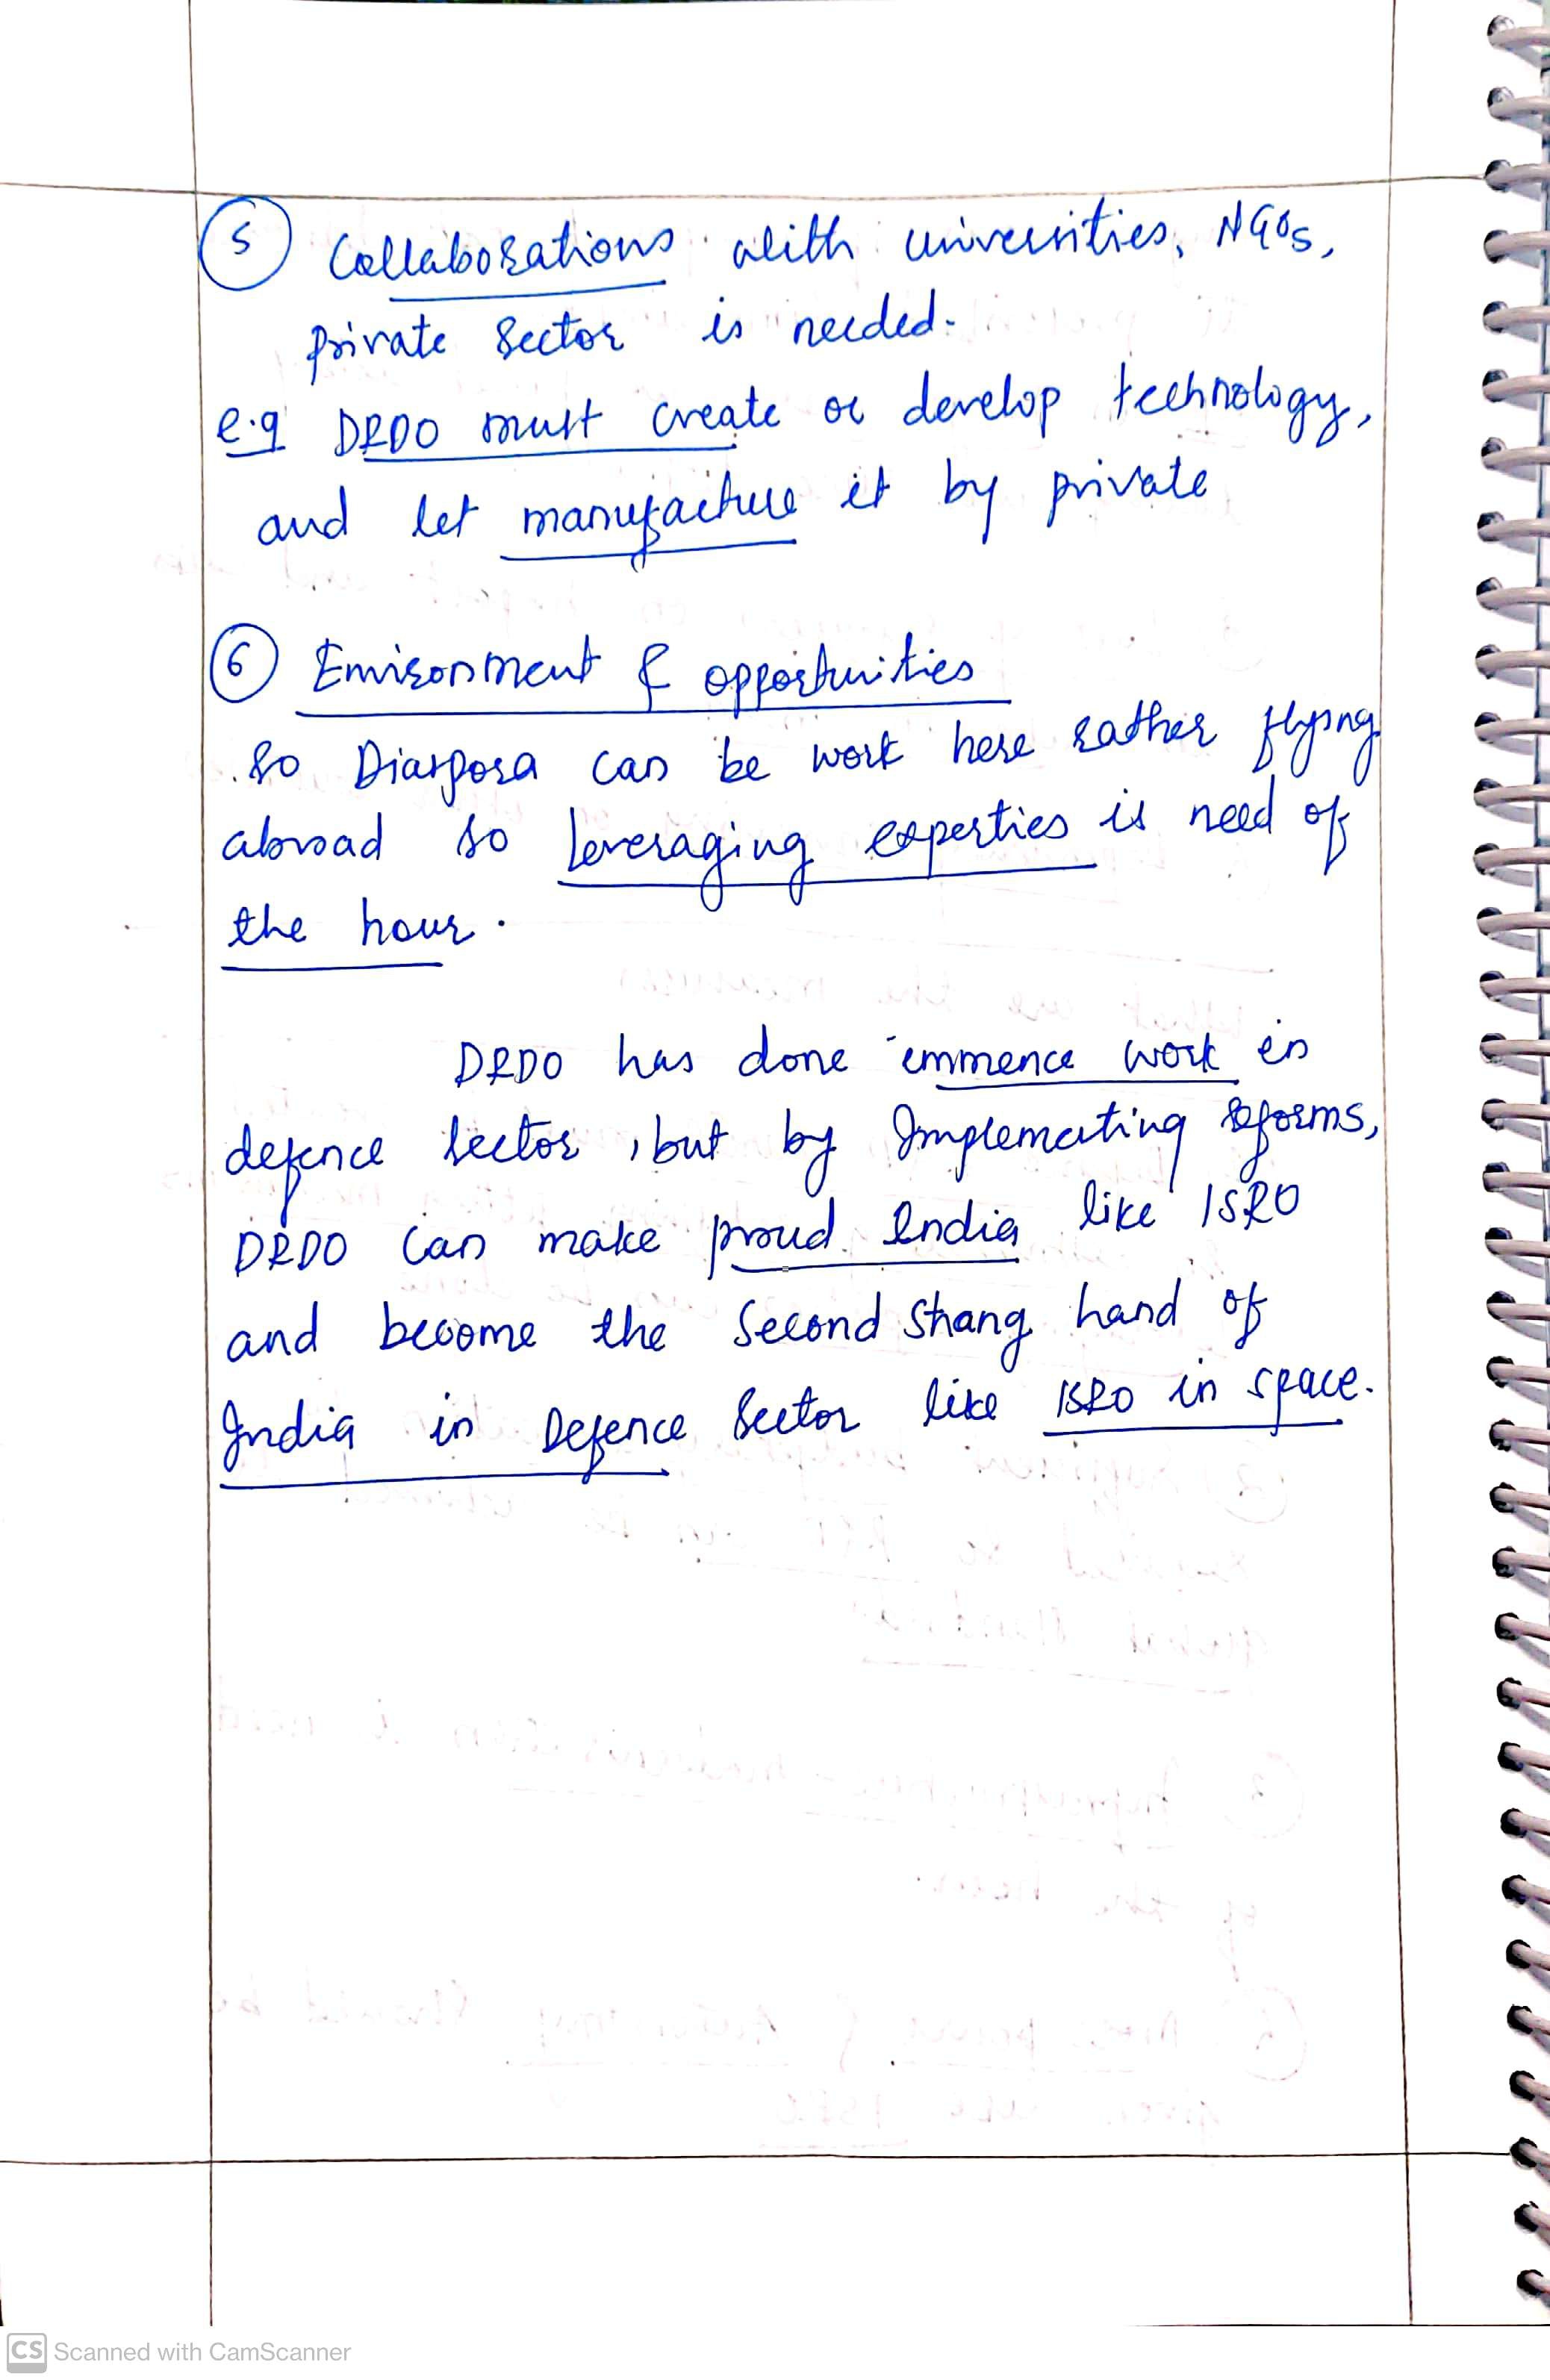 5 Collaborations with universities, NGOs,
private sector is needed.
e.g DRDO must create or develop technology,
and let manufacture it by private
6 Environment & opportunities
so Diaspora can be work here rather flying
abroad so leveraging experties is need of
the hour.
DRDO has done immence work in
defence sector, but by Implementing reforms,
DRDO can make proud India like ISRO
and become the second strang hand of
India in Defence Sector like ISRO in space.
CS Scanned with CamScanner